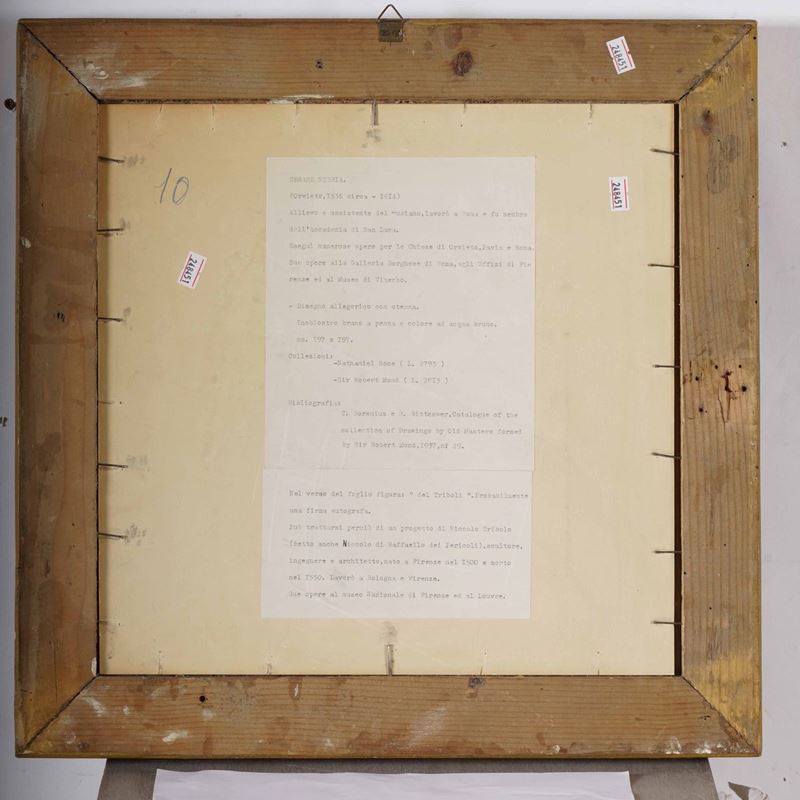 248451
10
248451
248451
CESARE NEBBIA.
(Orvieto,1536 circa - 1614)
Allievo e assistente del Muziano,lavorò a Roma e fu membro
dell'Accademia di San Luca.
Eseguì numerose opere per le Chiese di Orvieto,Pavia e Roma.
Sue opere alla Galleria Borghese di Roma,agli Uffizi di Fi=
renze ed al Museo di Viterbo.
- Disegno allegorico con stemma.
Inchiostro bruno a penna e colore ad acqua bruno.
mm. 197 x 197.
Collezioni:
-Nathaniel Hone ( L. 2793 )
-Sir Robert Mond ( L. 2813 )
Bibliografia:
T. Borenius e R. Wittkower,Catalogue of the
collection of Drawings by Old Masters formed
by Sir Robert Mond,1937,n° 29.
Nel verso del foglio figura: " del Triboli ".Probabilmente
una firma autografa.
Può trattarsi perciò di un progetto di Niccolo Tribolo
(detto anche Niccolo di Raffaello dei Pericoli),scultore,
ingegnere e architetto,nato a Firenze nel 1500 e morto
nel 1550. Lavorò a Bologna e Firenze.
Sue opere al museo Nazionale di Firenze ed al Louvre.